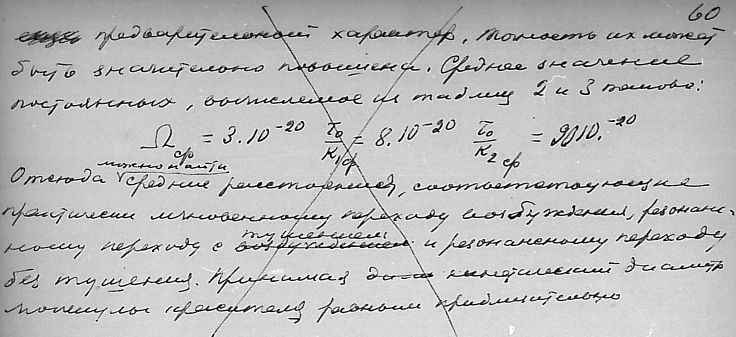 60
предварительный характер, точность их может
быть значительно повышена. Среднее значение
постоянных, вычисляемое из таблиц 2 и 3 таково:
Ω ср = 3.10⁻²⁰ τ₀/K₁ ср = 8.10⁻²⁰ τ₀/K₂ ср = 9010.⁻²⁰
можно найти
Отсюда средние расстояния, соответствующие
практически мгновенному переходу возбуждения, резонанс-
тушением
ному переходу с возбуждением и резонансному переходу
без тушения. Принимая кинетический диаметр
молекулы красителя равным приблизительно